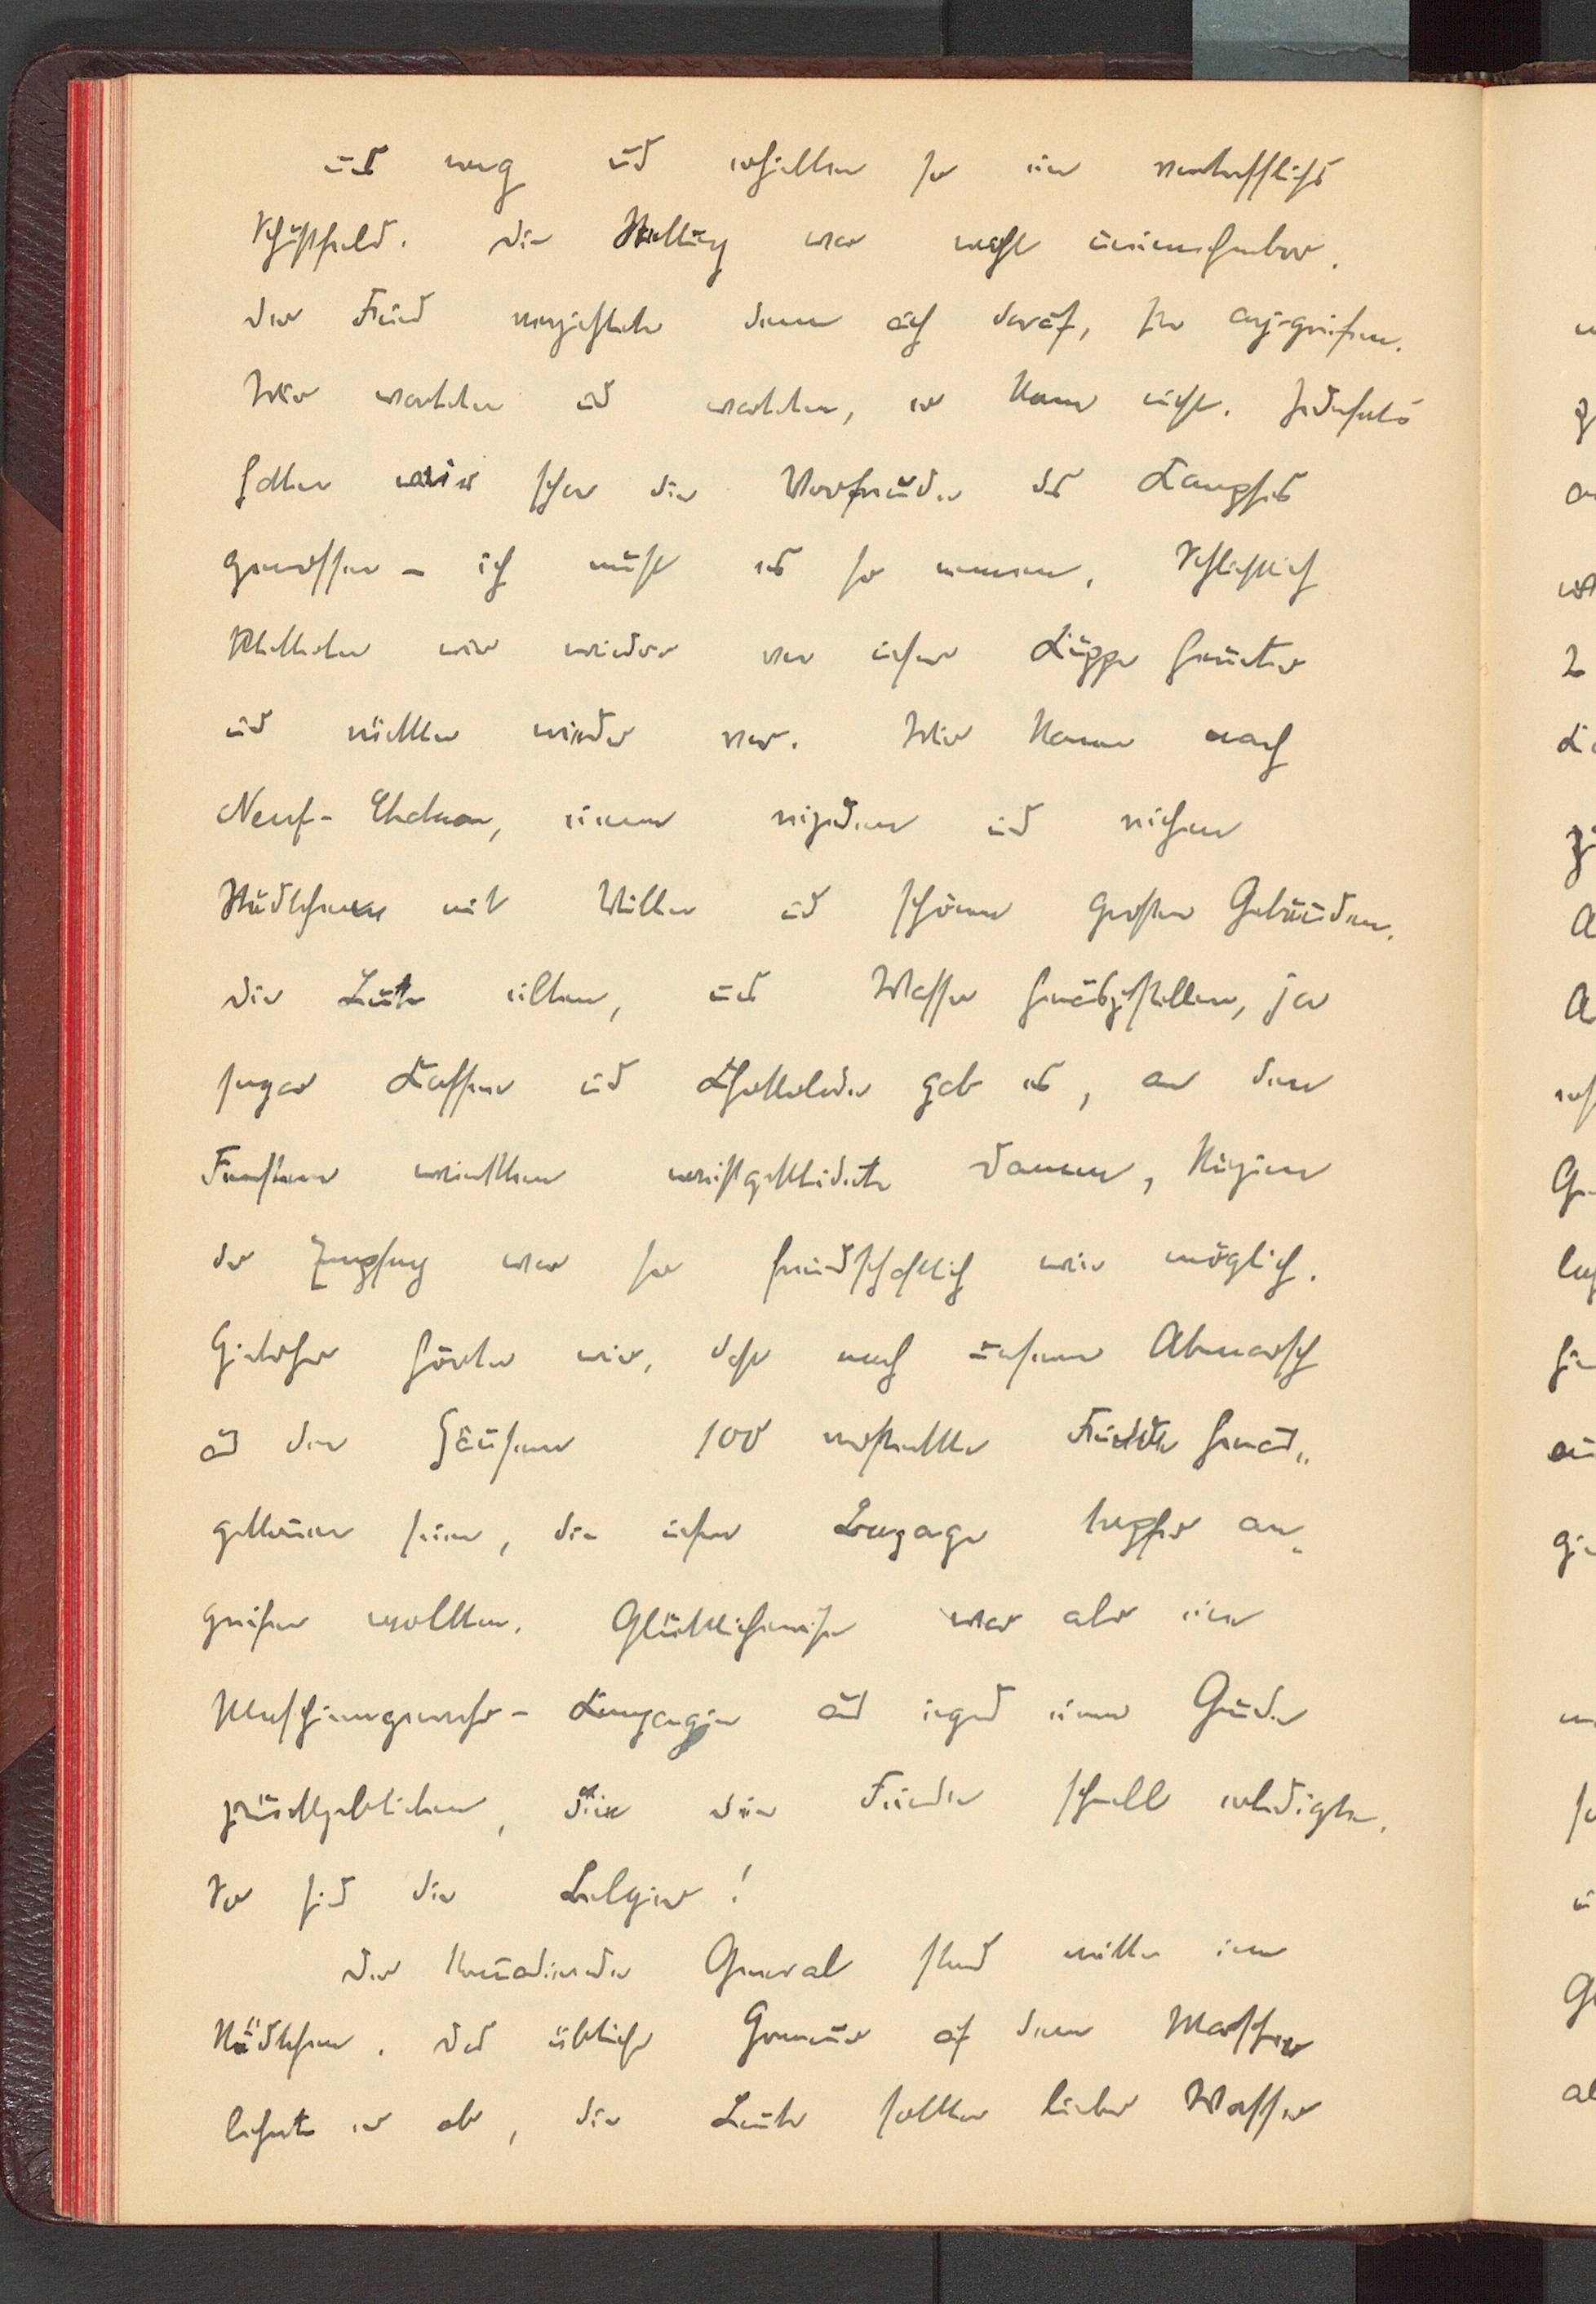 uns weg und erhielten so ein vortreffliches
Schußfeld. Die Stellung war wohl uneinnehmbar.
Der Feind verzichtete denn auch darauf, sie anzugreifen.
Wir warteten und warteten, er kam nicht. Jedenfalls
hatten wir schon die Vorfreude des Kampfes
genossen – ich muß es so nennen. Schließlich
kletterten wir wieder von unserer Kuppe herunter
und rückten wieder vor. Wir kamen nach
Neuf-Chateau, einem reizenden und reichen
Städtchen mit Villen und schönen großen Gebäuden.
Die Leute eilten, uns Wasser herauszustellen, ja
sogar Kaffee und Schokolade gab es, an den
Fenstern winkten weißgekleidete Damen, kurzum
der Empfang war so freundschaftlich wie möglich.
Hinterher hörten wir, daß nach unserem Abmarsch
aus den Häusern 100 versteckte Feinde heraus„
gekommen seien, die unsere Bagage tapfer an„
greifen wollten. Glücklicherweise war aber eine
Maschinengewehr-Kompagnie aus irgend einem Grunde
zurückgeblieben, die die Feinde schnell erledigte.
So sind die Belgier!
Der kommandierende General stand mitten im
Städtchen. Das übliche Honneur auf dem Marsche
lehnte er ab, die Leute sollten lieber Wasser